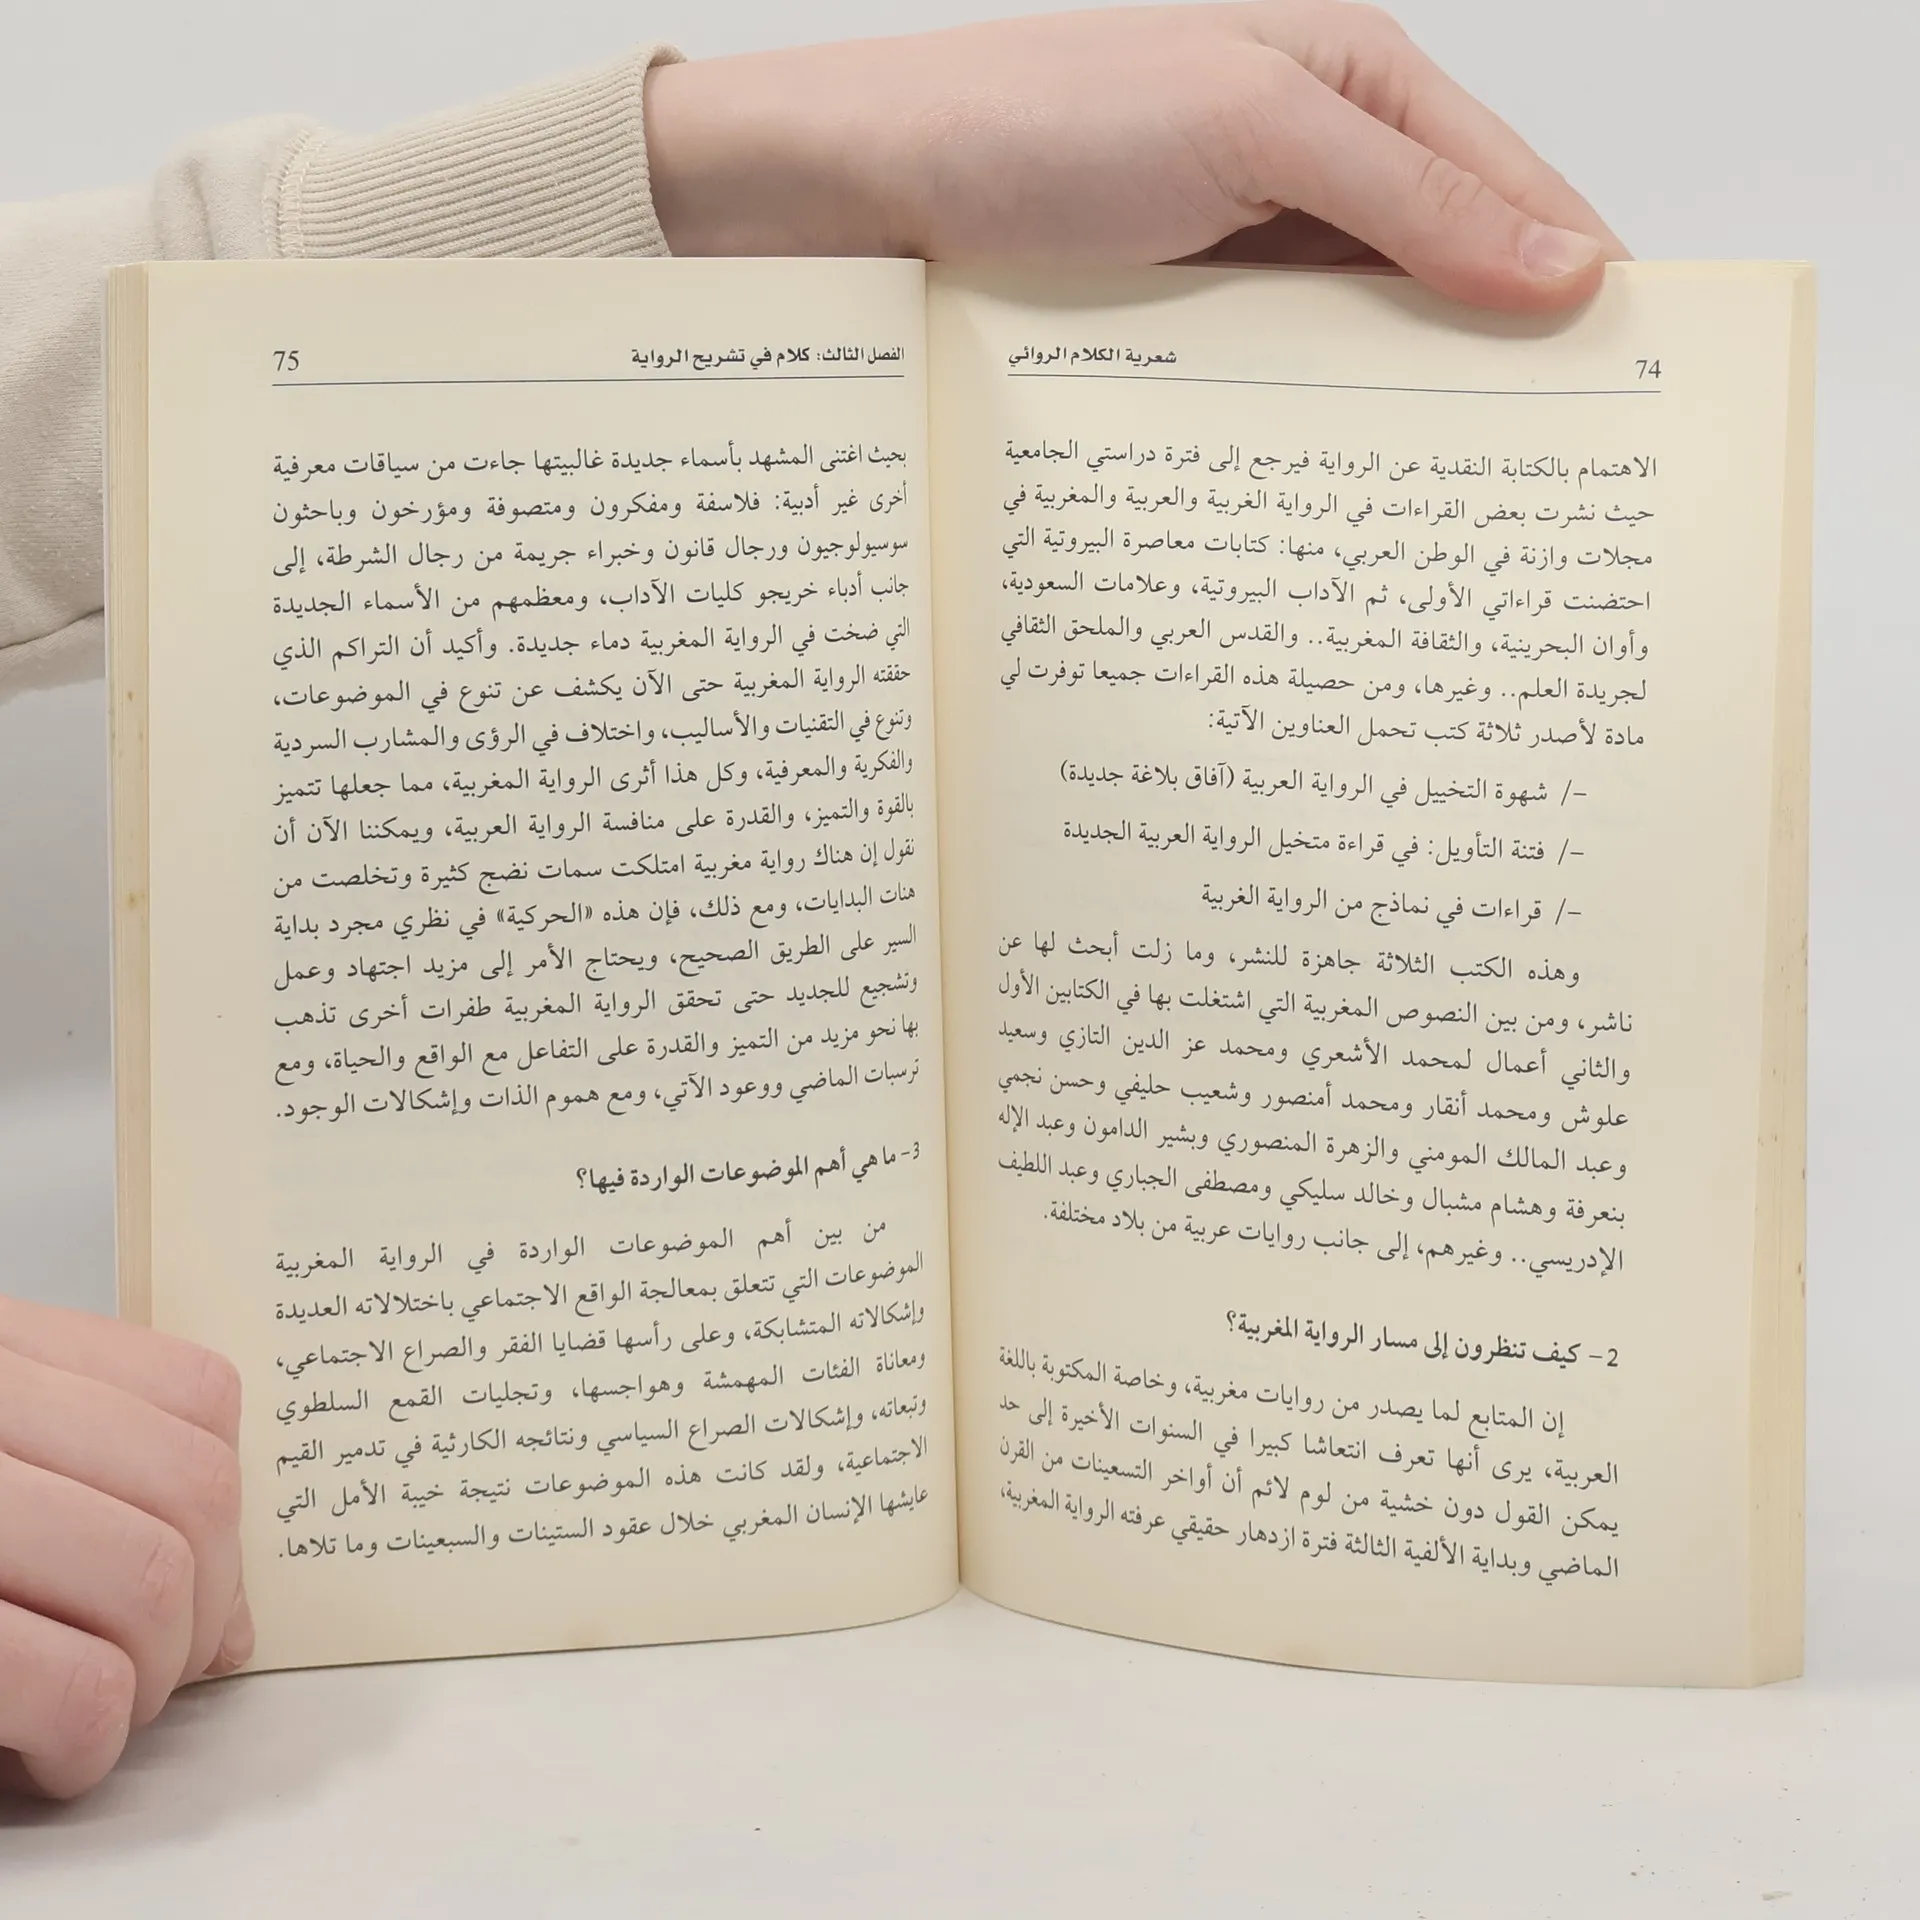 74
شعرية الكلام الروائي
الاهتمام بالكتابة النقدية عن الرواية فيرجع إلى فترة دراستي الجامعية
حيث نشرت بعض القراءات في الرواية الغربية والعربية والمغربية في
مجلات وازنة في الوطن العربي، منها: كتابات معاصرة البيروتية التي
احتضنت قراءاتي الأولى، ثم الآداب البيروتية، وعلامات السعودية،
وأوان البحرينية، والثقافة المغربية.. والقدس العربي والملحق الثقافي
لجريدة العلم.. وغيرها، ومن حصيلة هذه القراءات جميعا توفرت لي
مادة لأصدر ثلاثة كتب تحمل العناوين الآتية:
-/ شهوة التخييل في الرواية العربية (آفاق بلاغة جديدة)
-/ فتنة التأويل: في قراءة متخيل الرواية العربية الجديدة
-/ قراءات في نماذج من الرواية الغربية
وهذه الكتب الثلاثة جاهزة للنشر، وما زلت أبحث لها عن
ناشر، ومن بين النصوص المغربية التي اشتغلت بها في الكتابين الأول
والثاني أعمال لمحمد الأشعري ومحمد عز الدين التازي وسعيد
علوش ومحمد أنقار ومحمد أمنصور وشعيب حليفي وحسن نجمي
وعبد المالك المومني والزهرة المنصوري وبشير الدامون وعبد الإله
بنعرفة وهشام مشبال وخالد سليكي ومصطفى الجباري وعبد اللطيف
الإدريسي.. وغيرهم، إلى جانب روايات عربية من بلاد مختلفة.
2- كيف تنظرون إلى مسار الرواية المغربية؟
إن المتابع لما يصدر من روايات مغربية، وخاصة المكتوبة باللغة
العربية، يرى أنها تعرف انتعاشا كبيرا في السنوات الأخيرة إلى حد
يمكن القول دون خشية من لوم لائم أن أواخر التسعينات من القرن
الماضي وبداية الألفية الثالثة فترة ازدهار حقيقي عرفته الرواية المغربية،
الفصل الثالث: كلام في تشريح الرواية
75
بحيث اغتنى المشهد بأسماء جديدة غالبيتها جاءت من سياقات معرفية
أخرى غير أدبية: فلاسفة ومفكرون ومتصوفة ومؤرخون وباحثون
سوسيولوجيون ورجال قانون وخبراء جريمة من رجال الشرطة، إلى
جانب أدباء خريجو كليات الآداب، ومعظمهم من الأسماء الجديدة
التي ضخت في الرواية المغربية دماء جديدة. وأكيد أن التراكم الذي
حققته الرواية المغربية حتى الآن يكشف عن تنوع في الموضوعات،
وتنوع في التقنيات والأساليب، واختلاف في الرؤى والمشارب السردية
والفكرية والمعرفية، وكل هذا أثرى الرواية المغربية، مما جعلها تتميز
بالقوة والتميز، والقدرة على منافسة الرواية العربية، ويمكننا الآن أن
نقول إن هناك رواية مغربية امتلكت سمات نضج كثيرة وتخلصت من
هنات البدايات، ومع ذلك، فإن هذه «الحركية» في نظري مجرد بداية
السير على الطريق الصحيح، ويحتاج الأمر إلى مزيد اجتهاد وعمل
وتشجيع للجديد حتى تحقق الرواية المغربية طفرات أخرى تذهب
بها نحو مزيد من التميز والقدرة على التفاعل مع الواقع والحياة، ومع
ترسبات الماضي ووعود الآتي، ومع هموم الذات وإشكالات الوجود.
3- ما هي أهم الموضوعات الواردة فيها؟
من بين أهم الموضوعات الواردة في الرواية المغربية
الموضوعات التي تتعلق بمعالجة الواقع الاجتماعي باختلالاته العديدة
وإشكالاته المتشابكة، وعلى رأسها قضايا الفقر والصراع الاجتماعي،
ومعاناة الفئات المهمشة وهواجسها، وتجليات القمع السلطوي
وتبعاته، وإشكالات الصراع السياسي ونتائجه الكارثية في تدمير القيم
الاجتماعية، ولقد كانت هذه الموضوعات نتيجة خيبة الأمل التي
عايشها الإنسان المغربي خلال عقود الستينات والسبعينات وما تلاها.